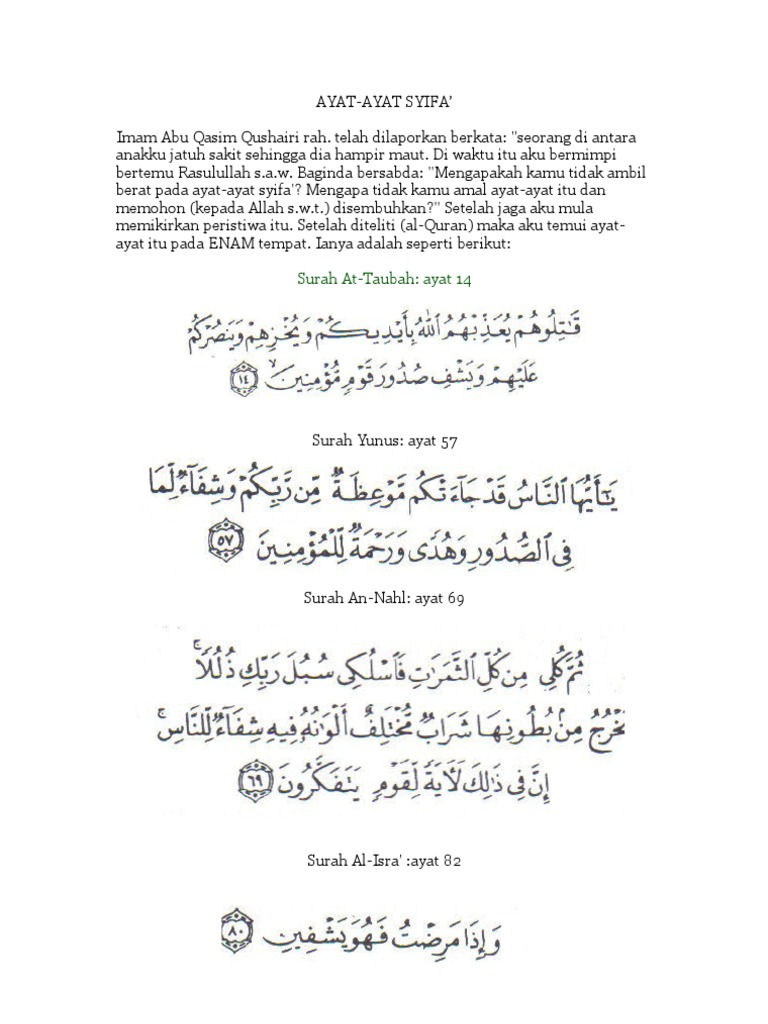 AYAT-AYAT SYIFA'
Imam Abu Qasim Qushairi rah. telah dilaporkan berkata: "seorang di antara
anakku jatuh sakit sehingga dia hampir maut. Di waktu itu aku bermimpi
bertemu Rasulullah s.a.w. Baginda bersabda: "Mengapakah kamu tidak ambil
berat pada ayat-ayat syifa'? Mengapa tidak kamu amal ayat-ayat itu dan
memohon (kepada Allah s.w.t.) disembuhkan?" Setelah jaga aku mula
memikirkan peristiwa itu. Setelah diteliti (al-Quran) maka aku temui ayat-
ayat itu pada ENAM tempat. Ianya adalah seperti berikut:
Surah At-Taubah: ayat 14
قَٰتِلُوهُمْ يُعَذِّبْهُمُ ٱللَّهُ بِأَيْدِيكُمْ وَيُخْزِهِمْ وَيَنصُرْكُمْ
عَلَيْهِمْ وَيَشْفِ صُدُورَ قَوْمٍ مُّؤْمِنِينَ ۙ ١٤
Surah Yunus: ayat 57
يَٰٓأَيُّهَا ٱلنَّاسُ قَدْ جَآءَتْكُم مَّوْعِظَةٌ مِّن رَّبِّكُمْ وَشِفَآءٌ لِّمَا
فِى ٱلصُّدُورِ وَهُدًى وَرَحْمَةٌ لِّلْمُؤْمِنِينَ ٥٧
Surah An-Nahl: ayat 69
ثُمَّ كُلِى مِن كُلِّ ٱلثَّمَرَٰتِ فَٱسْلُكِى سُبُلَ رَبِّكِ ذُلُلًا ۚ
يَخْرُجُ مِنۢ بُطُونِهَا شَرَابٌ مُّخْتَلِفٌ أَلْوَٰنُهُۥ فِيهِ شِفَآءٌ لِّلنَّاسِ ۗ
إِنَّ فِى ذَٰلِكَ لَءَايَةً لِّقَوْمٍ يَتَفَكَّرُونَ ٦٩
Surah Al-Isra' :ayat 82
وَإِذَا مَرِضْتُ فَهُوَ يَشْفِينِ ٨٠